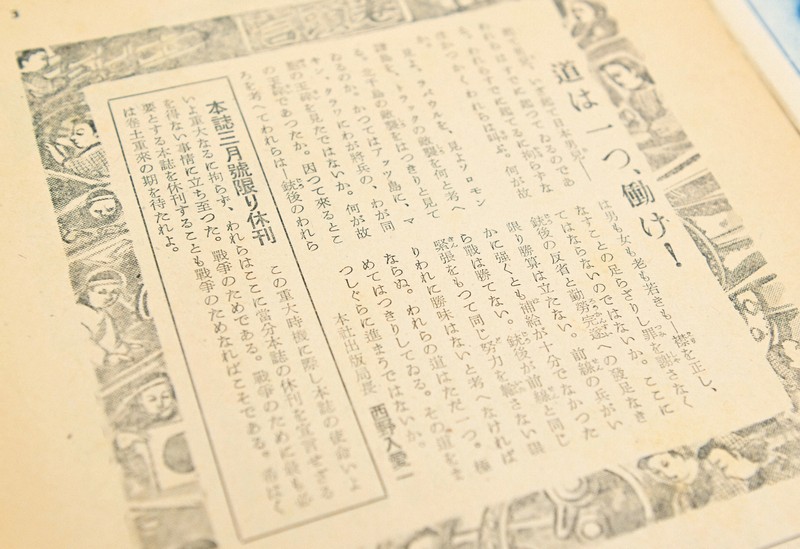 3
道は一つ、働け!
われらはすでに起つてゐるのであ
る。われらすでに起てるに拘らずな
ほかつ、かくわれらは叫ぶ。何が故
か。
見よ、ラバウルを、見よソロモン
諸島を、トラックの敵襲を何と考へ
る。北千島の敵襲をはつきりと見て
ゐるのか。かつてはアッツ島に、マ
キン、タラワにわが將兵の、わが同
胞の玉碎を見たではないか。何が故
の玉碎であつたか。因つて來るとこ
ろを考へてわれらは―銃後のわれら
は男も女も老も若きも―襟を正し、
なすことの足らざりし罪を謝さなく
てはならないのではないか。ここに
銃後の反省と勤勞完遂への發足なき
限り勝算は立たない。前線の兵がい
かに强くとも補給が十分でなかつた
ら戰は勝てない。銃後が前線と同じ
緊張をもつて同じ努力を さない限
りわれに勝味はないと考へなければ
ならぬ。われらの道はただ一つ。極
めてはつきりしてゐる。その道をま
つしぐらに進まうではないか。
本社出版局長 西野入愛一
本誌三月號限り休刊
この重大時機に際し本誌の使命いよ
いよ重大なるに拘らず、われらはここに當分本誌の休刊を宣言せざる
を得ない事情に立ち至つた。戰爭のためである。戰爭のために最も必
要とする本誌を休刊することも戰爭のためなればこそである。希はく
は卷土重來の期を待たれよ。